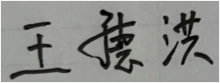 王德洪